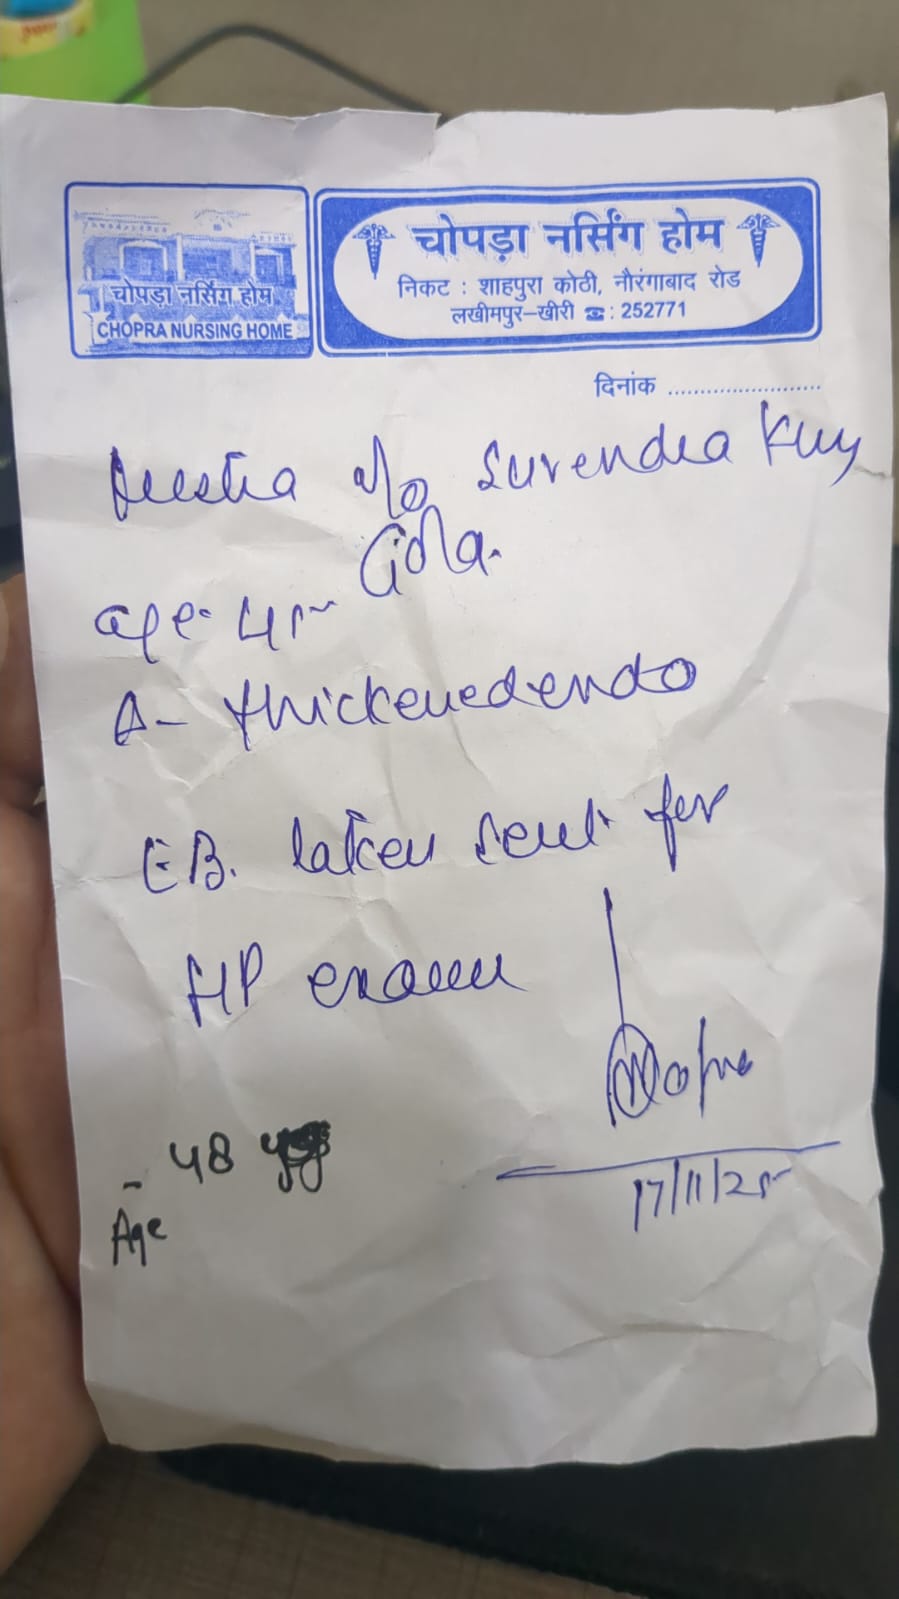 चोपड़ा नर्सिंग होम
CHOPRA NURSING HOME
चोपड़ा नर्सिंग होम
निकट : शाहपुरा कोठी, नौरंगाबाद रोड
लखीमपुर-खीरी ☎: 252771
दिनांक ........................
Surendra
Gola.
age-
thickenedendo
EB. taken sent for
HP exam
17/11/25
- 48
Age